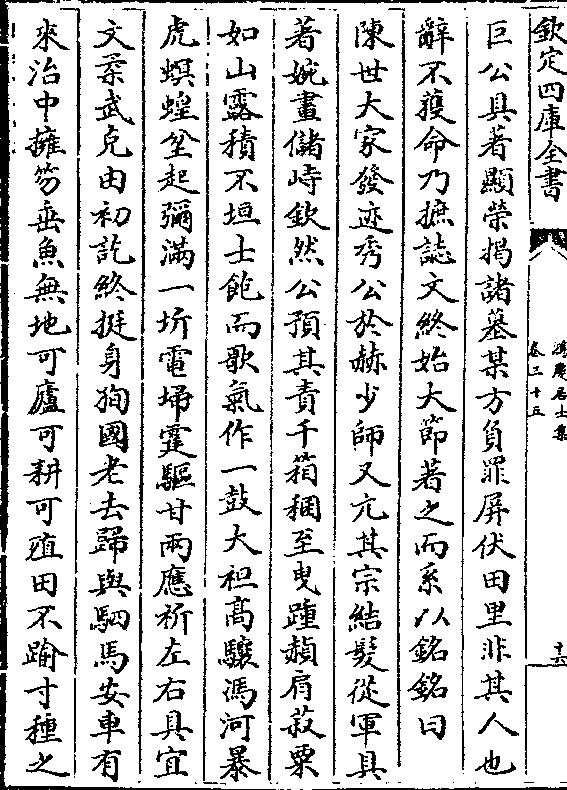 欽定四庫全書
鴻慶居士集
卷三十五
十六
巨公具著顯榮揭諸墓某方負罪屏伏田里非其人也
辭不獲命乃摭誌文終始大節著之而系以銘銘曰
陳世大家發迹秀公於赫少師又亢其宗結髮從軍具
著婉畫儲峙欽然公預其責千箱稛至曳踵頳肩菽粟
如山露積不垣士飽而歌氣作一鼓大袒高驤馮河暴
虎螟蝗坌起彌滿一圻電埽霆驅甘雨應祈左右具宜
文柔武克由初訖終挺身狥國老去歸與駟馬安車有
來治中擁笏垂魚無地可廬可耕可殖田不踰寸種之